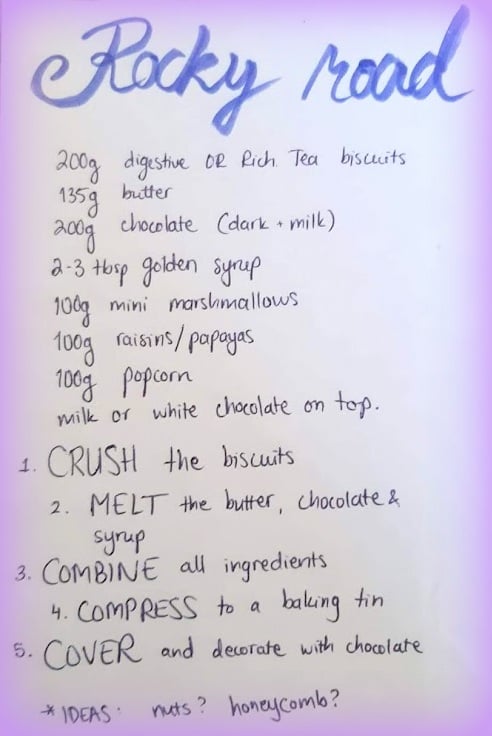 Rocky road
200g digestive OR Rich Tea biscuits
135g butter
200g chocolate (dark + milk)
2-3 tbsp golden syrup
100g mini marshmallows
100g raisins/papayas
100g popcorn
milk or white chocolate on top.
1. CRUSH the biscuits
2. MELT the butter, chocolate &
syrup
3. COMBINE all ingredients
4. COMPRESS to a baking tin
5. COVER and decorate with chocolate
* IDEAS: nuts? honeycomb?